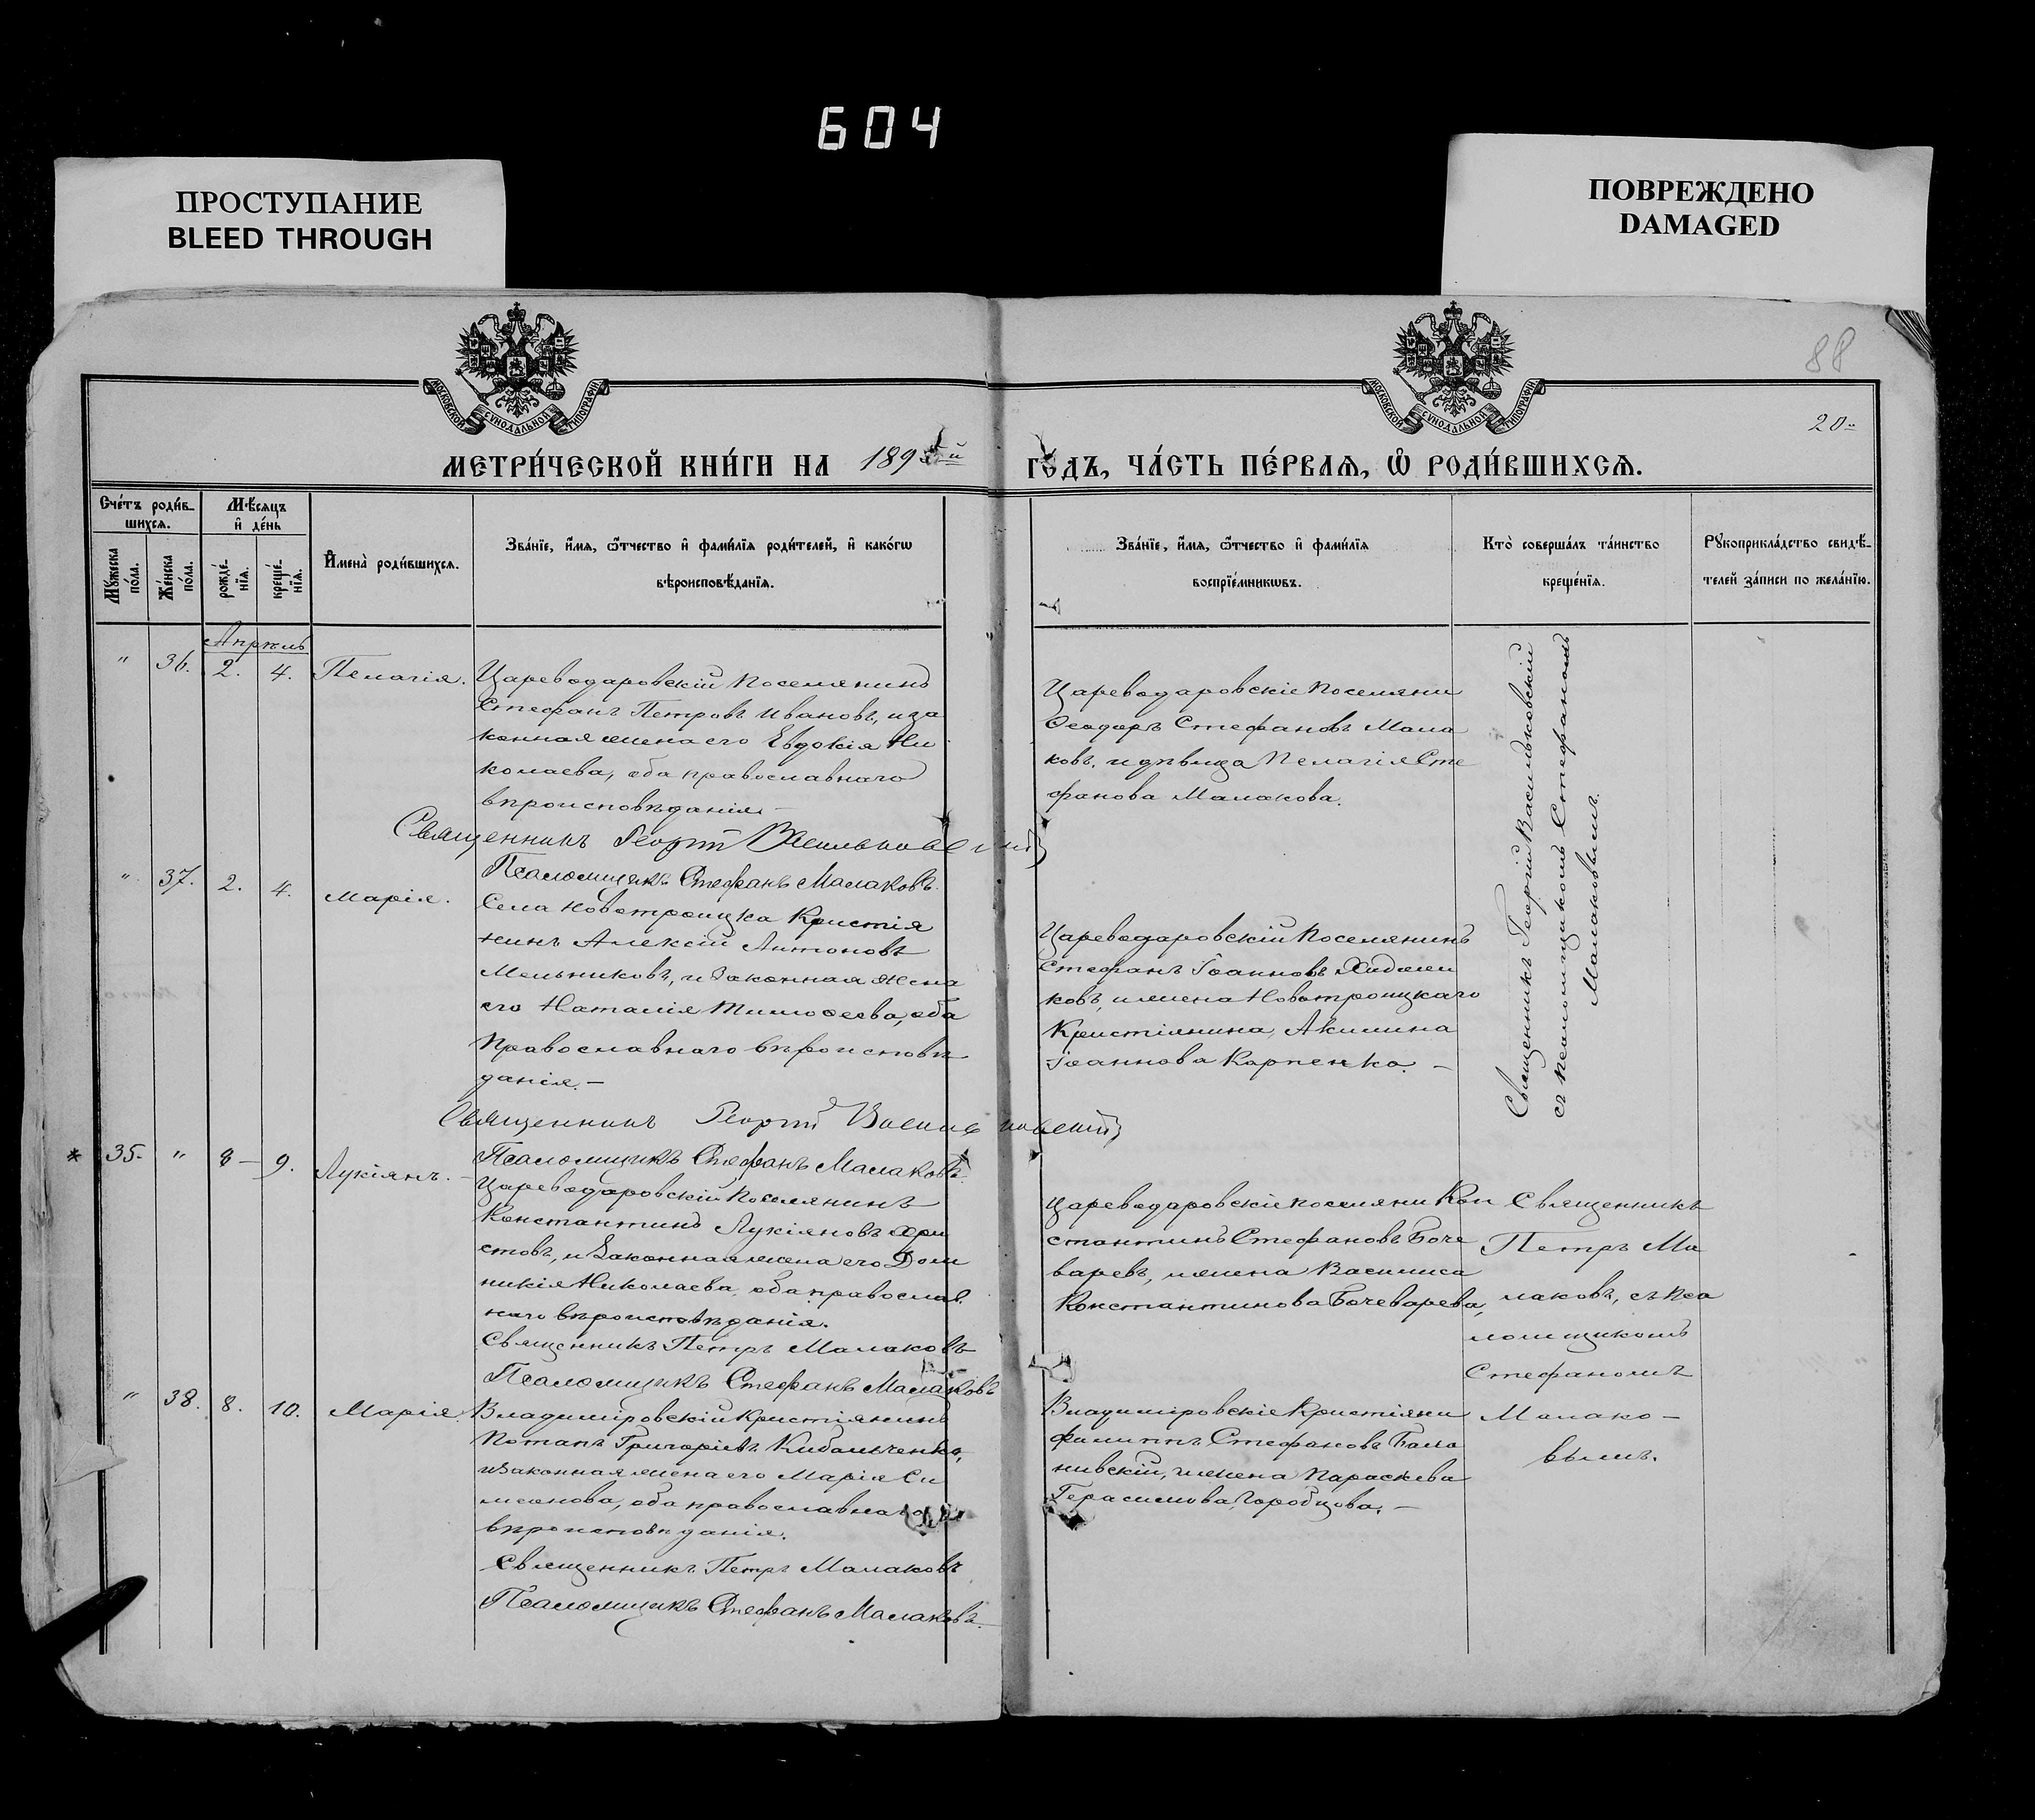 604
ПРОСТУПАНИЕ
BLEED THROUGH
ПОВРЕЖДЕНО
DAMAGED
МОСКОВСКОЙ СУНОДАЛЬНОЙ ТИПОГРАФИИ
МОСКОВСКОЙ СУНОДАЛЬНОЙ ТИПОГРАФИИ
88
20
МЕТРИ́ЧЕСКОЙ КНИ́ГИ НА 189 й ГО́ДЪ, ЧА́СТЬ ПЕ́РВАЯ, Ѡ҆ РОДИ́ВШИХСѦ.
Сче́тъ роди́в-
шихсѧ.
Мѣ́сяцъ
и҆ де́нь
Мꙋ́жеска
по́ла.
Же́нска
по́ла.
рожде́-
нїѧ.
креще́-
нїѧ.
И҆мена̀ роди́вшихсѧ.
Зва́нїе, и҆́мѧ, ѻ҆́тчество и҆ фами́лїѧ роди́телей, и҆ како́гѡ
вѣроисповѣ́данїѧ.
Зва́нїе, и҆́мѧ, ѻ҆́тчество и҆ фами́лїѧ
воспрїе́мникѡвъ.
Кто̀ соверша́лъ та́инство
креще́нїѧ.
Рꙋкоприкла́дство свидѣ́-
телей за́писи по жела́нїю.
Апрѣль
" 36. 2. 4. Пелагія.
Цареводаровскій поселянинъ
Стефанъ Петровъ Ивановъ, и за
конная жена его Евдокія Ни
колаева, оба православнаго
вѣроисповѣданія.—
Священникъ Георгій Васильковскій
Псаломщикъ Стефанъ Малаковъ.
Цареводаровскіе поселяни
Ѳеодоръ Стефановъ Мала
ковъ, и дѣвица Пелагія Сте
фанова Малакова.
Священникъ Георгій Васильковскій
съ псаломщикомъ Стефаномъ
Малаковымъ.
" 37. 2. 4. Марія.
Села Новотроицка Кристія
нинъ Алексій Антоновъ
Мельниковъ, и законная жена
его Наталія Тимоѳеева, оба
православнаго вѣроисповѣ
данія.—
Священникъ Георгій Васильковскій
Псаломщикъ Стефанъ Малаковъ.
Цареводаровскій поселянинъ
Стефанъ Іоанновъ
ковъ, и жена Новотроицкаго
Кристіянина, Акилина
Іоаннова Карпенко.—
* 35. " 8 — 9. Лукіянъ.—
Цареводаровскій поселянинъ
Константинъ Лукіяновъ Хри
стовъ, и законная жена его Дом
никія Николаева, оба православ
наго вѣроисповѣданія.
Священникъ Петръ Малаковъ
Псаломщикъ Стефанъ Малаковъ
Цареводаровскіе поселяни Кон
стантинъ Стефановъ Боче
варевъ, и жена Василиса
Константинова Бочеварева,
Священникъ
Петръ Ма
лаковъ, съ пса
ломщикомъ
Стефаномъ
Малако—
вымъ.
" 38. 8. 10. Марія.
Владиміровскій Кристіянинъ
Потапъ Григоріевъ Кибальченко,
и законная жена его Марія Си
меонова, оба православнаго
вѣроисповѣданія.
Священникъ Петръ Малаковъ
Псаломщикъ Стефанъ Малаковъ.
Владиміровскіе Кристіяни
Филиппъ Стефановъ Бала
нивскій, и жена Параскева
Герасимова Городцова.—